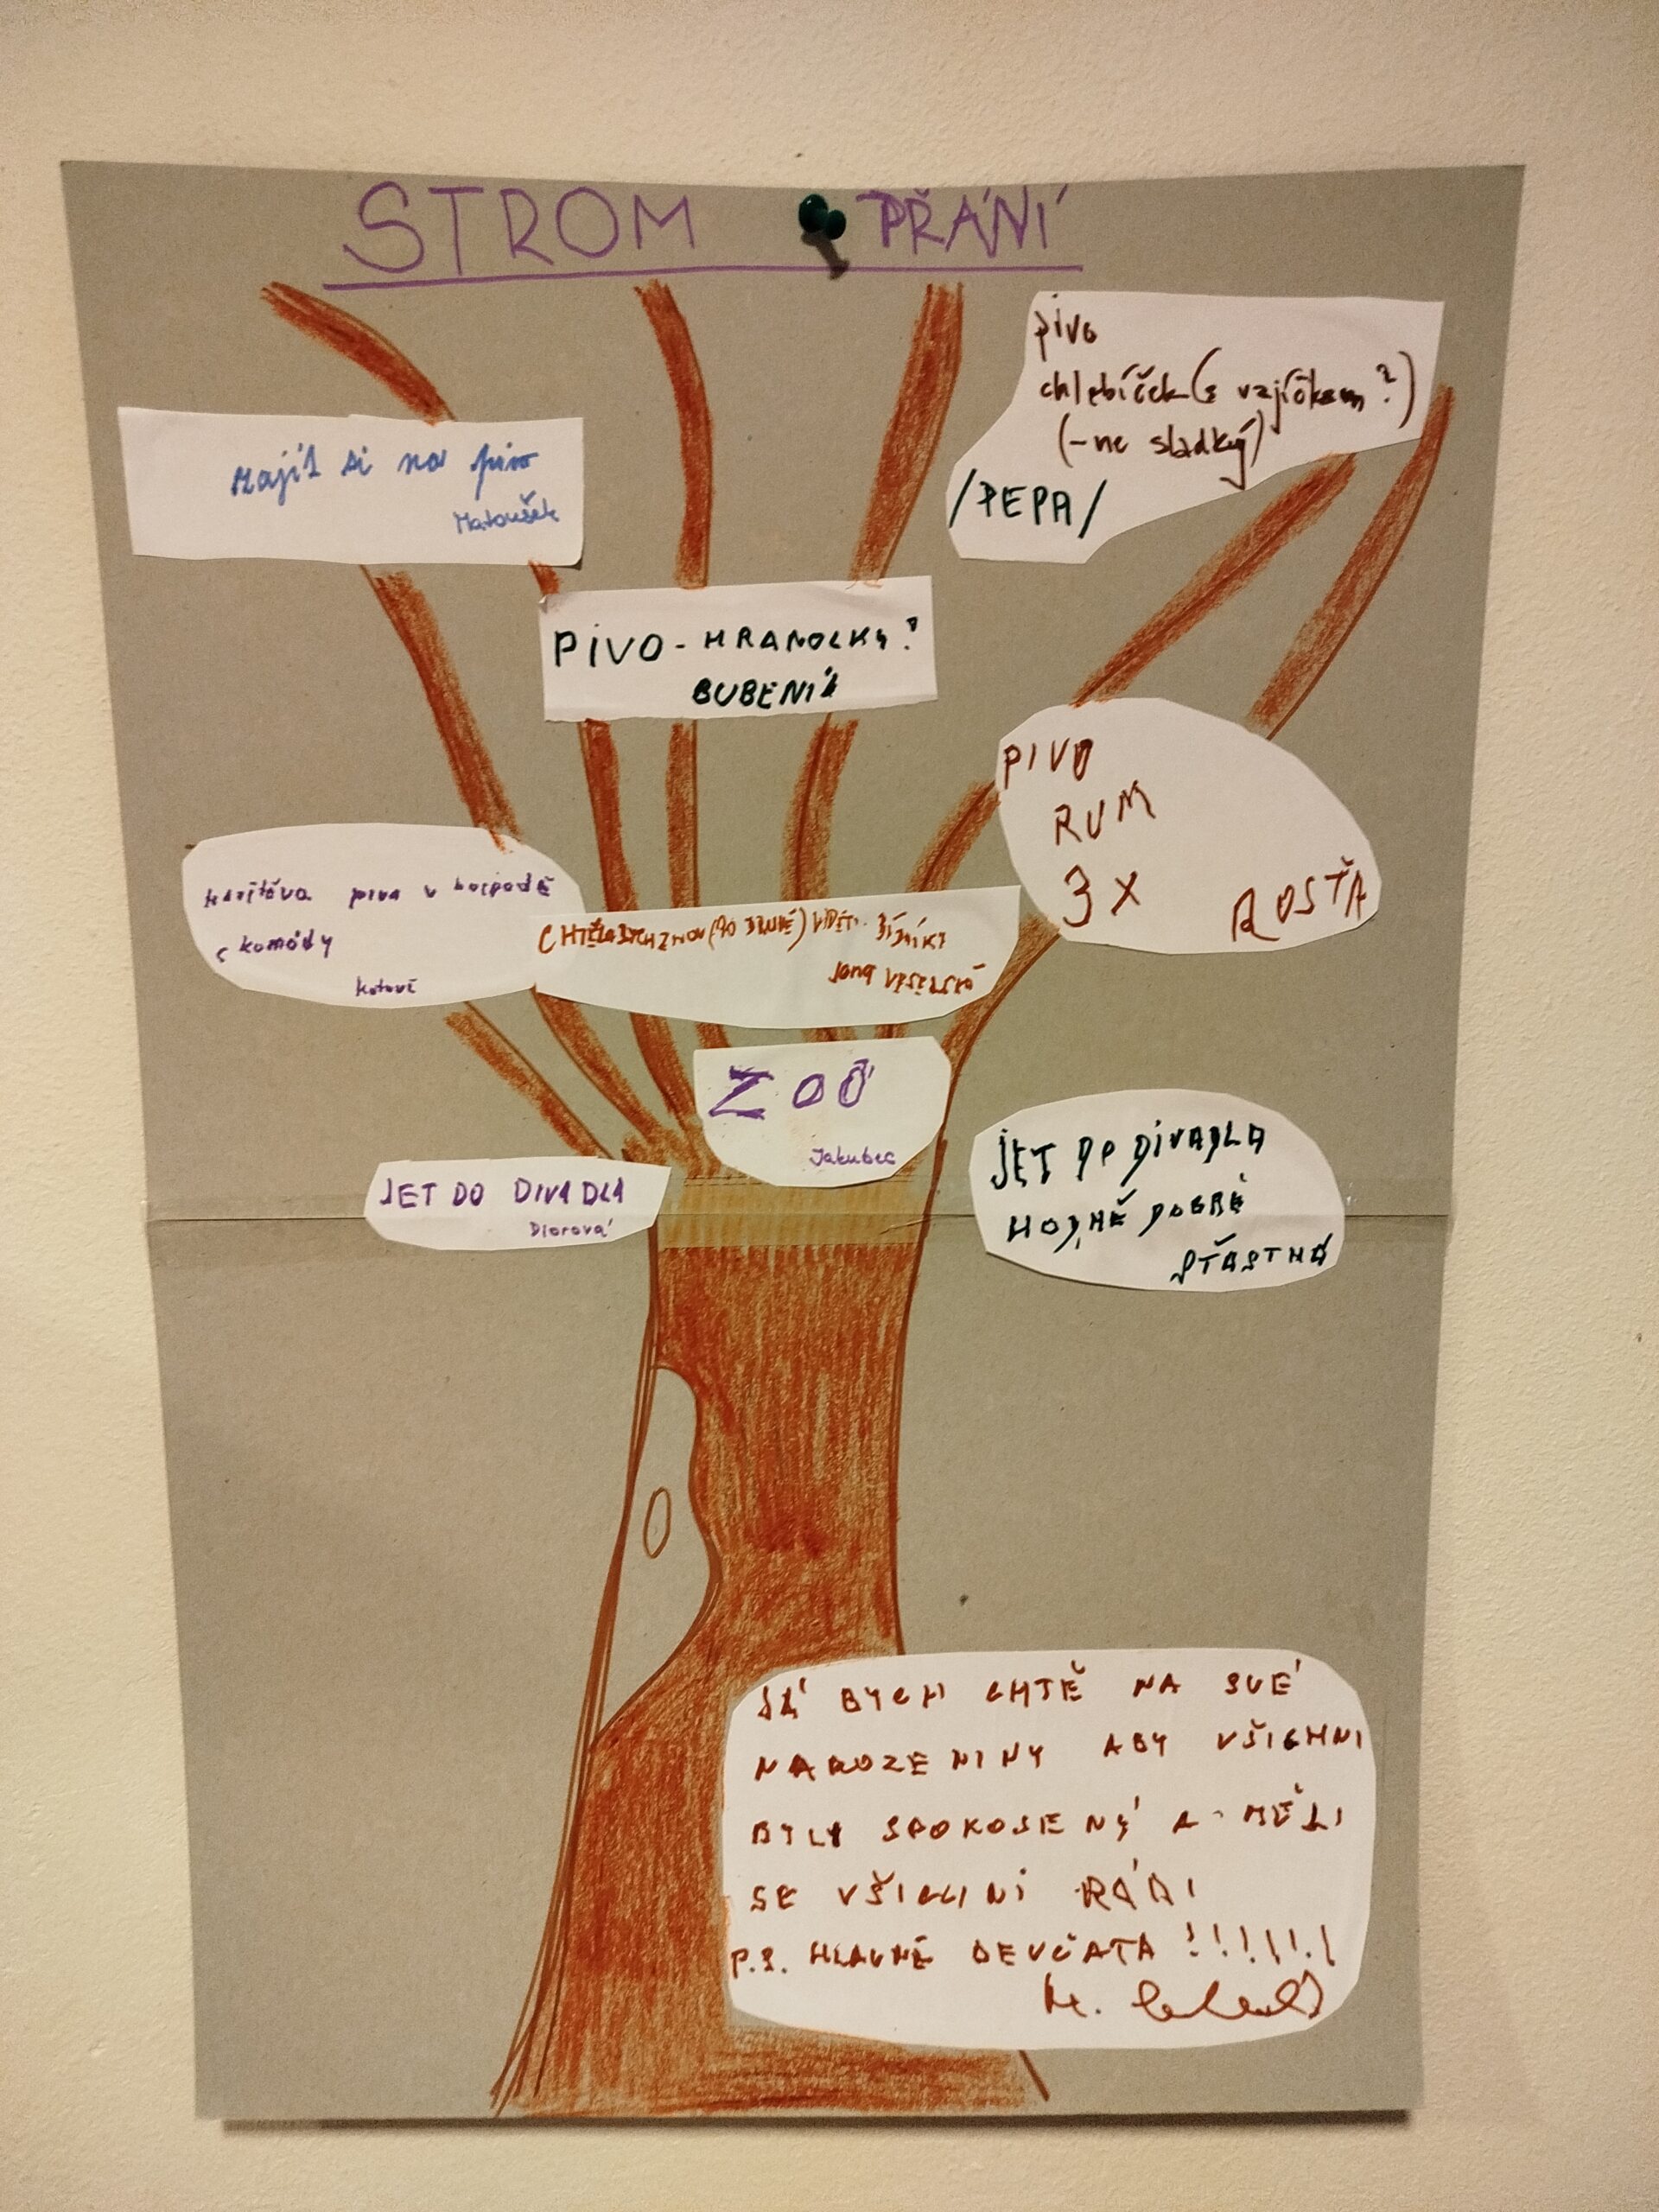 STROM PŘÁNÍ
pivo
chlebíček (s vajíčkem?)
(- ne sladký)
/PEPA/
zajít si na pivo
Matoušek
PIVO - HRANOLKY?
BUBENÍK
PIVO
RUM
3X ROSŤA
návštěva piva v hospodě
s komódy
CHTĚLA BYCH ZNOV (PO DRUHÉ) VIDĚT
Jana VESELSKÁ
ZOO
Jakubec
JET DO DIVADLA
HODNĚ DOBRÉ
ŠŤASTNÁ
JET DO DIVADLA
Diorová
JÁ BYCH CHTĚ NA SVÉ
NAROZENINY ABY VŠICHNI
BYLY SPOKOJENÝ A MĚLI
SE VŠICHNI RÁDI
P.S. HLAVNĚ DEVČATA !!!!!!